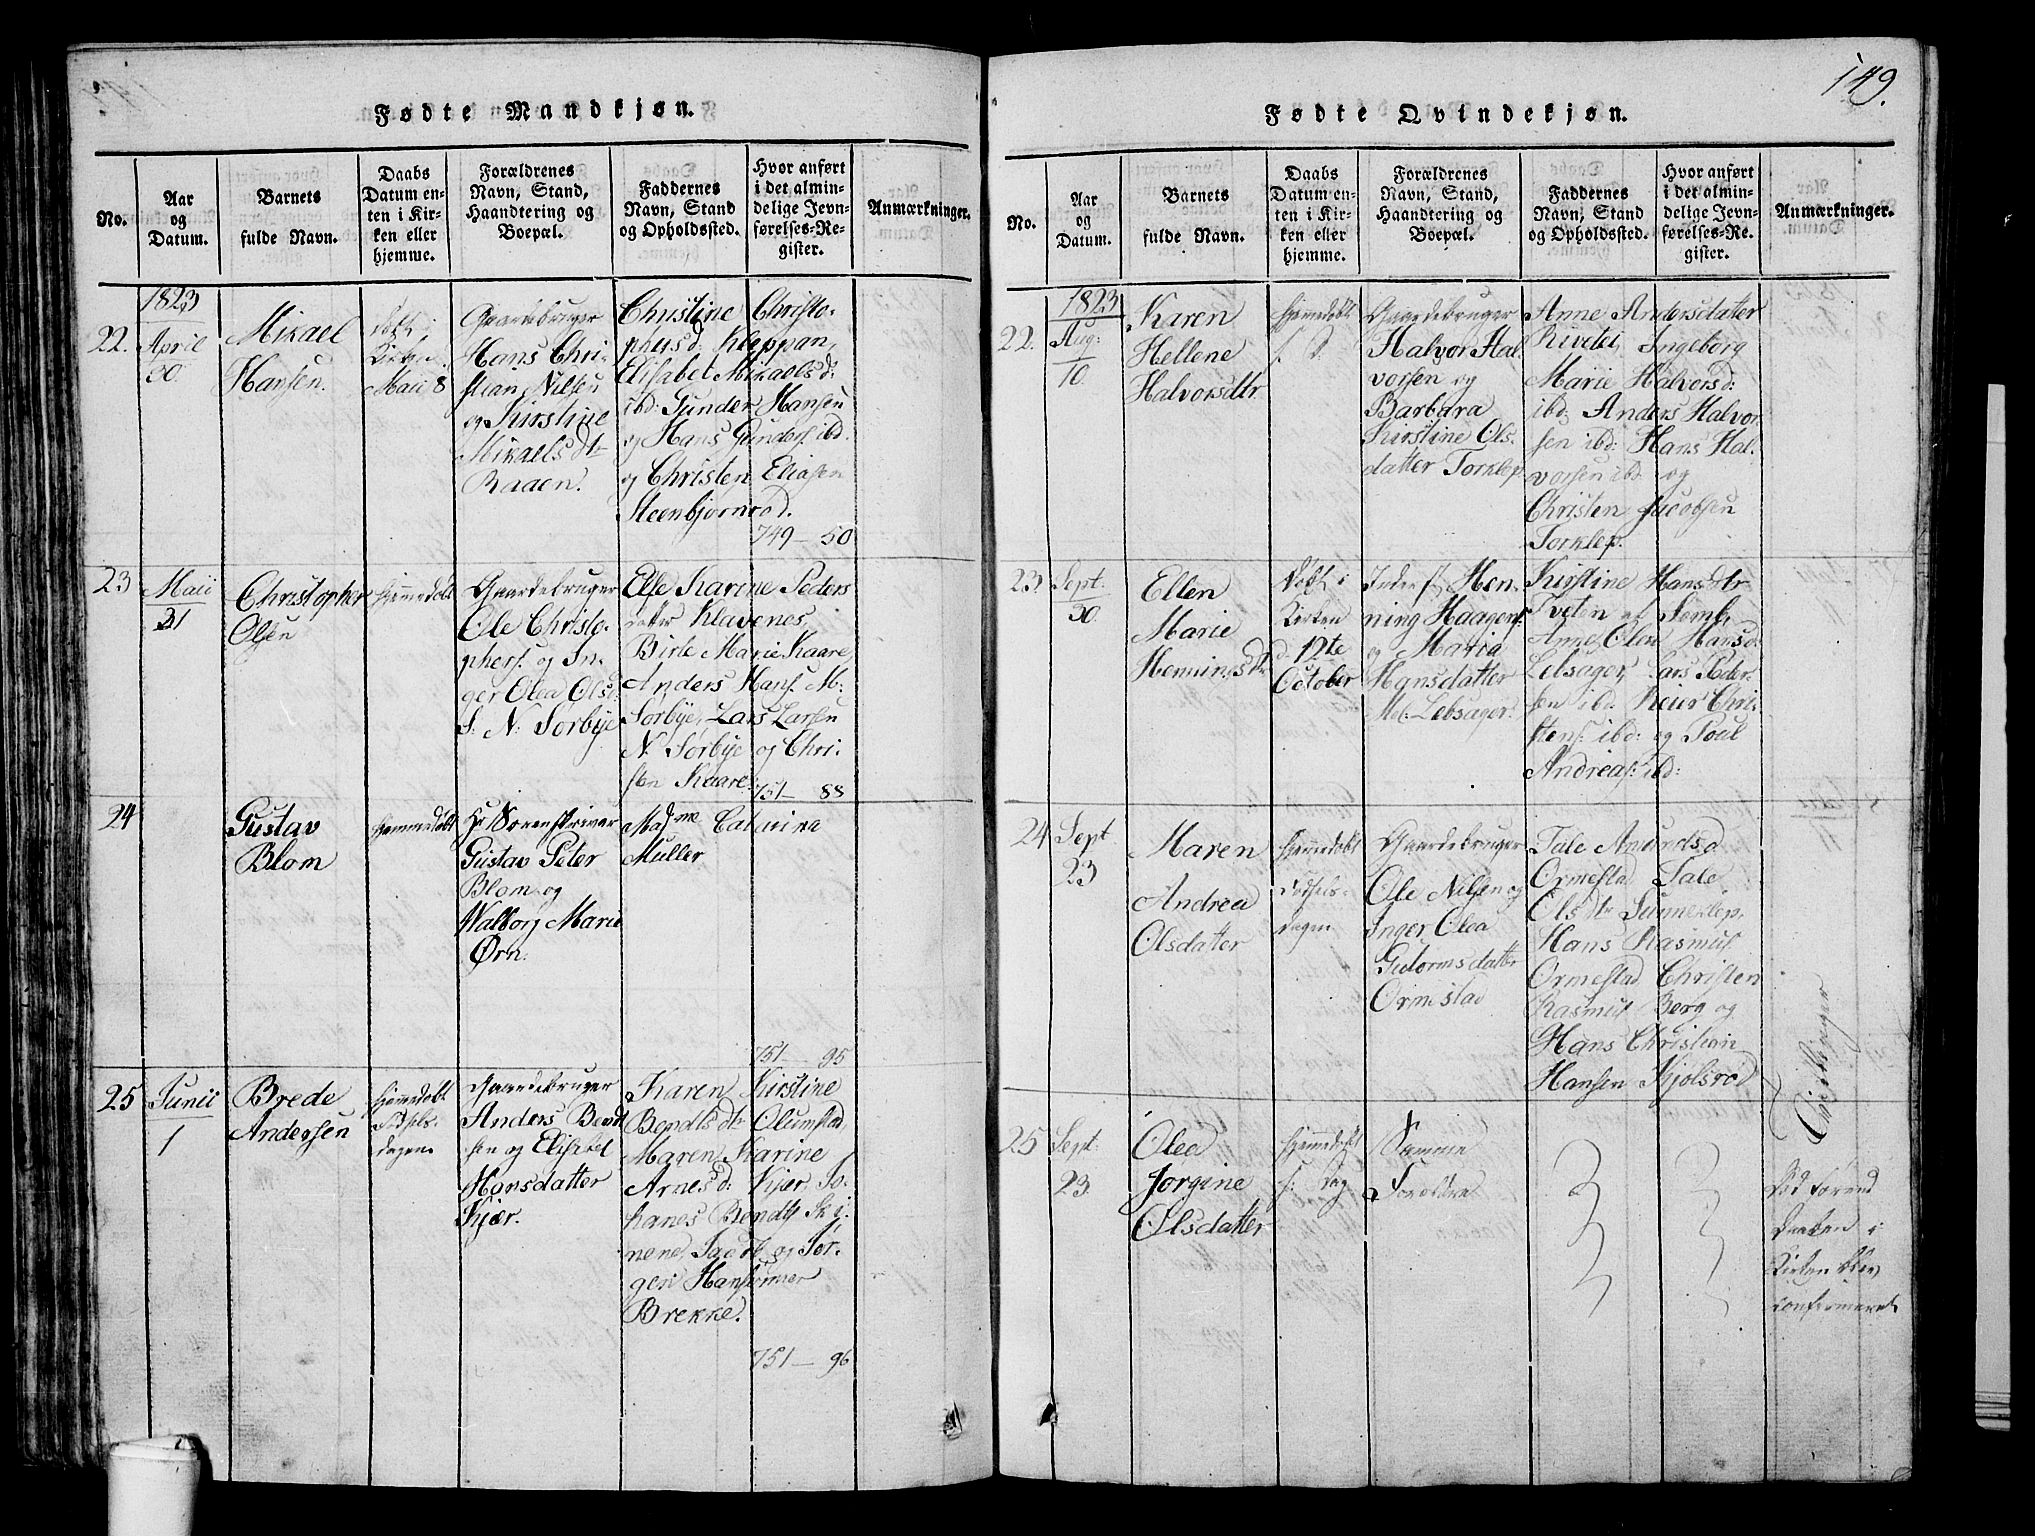 149.
Fødte Mandkjøn.
No.
Aar
og
Datum.
Barnets
fulde Navn.
Daabs
Datum en-
ten i Kir-
ken eller
hjemme.
Forældrenes
Navn, Stand,
Haandtering og
Boepæl.
Faddernes
Navn, Stand
og Opholdssted.
Hvor anført
i det almin-
delige Jevn-
førelses-Re-
gister.
Anmærkninger.
22.
1823
April
30.
Mikael
Hansen.
Døbt i
Kirken
Maii 8
Gaardebruger
Hans Chri-
stian Nilsen
og Kirstine
Mikaelsdtr
Raaen.
Christine Christo-
phersd. Kleppan,
Elisabet Mikaelsd:
ibd: Gunder Hansen
og Hans Gunders. ibd.
og Christen Eliasen
Steenbjørnrød.
749 — 50
23
Maii
31
Christopher
Olsen
hjemmedøbt
Gaardebruger
Ole Christo-
phers. og In-
ger Olea Olsd.
S: N: Sørbye
Else Karine Peders
datter Klavenes,
Birte Marie Kaare
Anders Hans. M:
Sørbye, Lars Larsen
N. Sørbye og Chri-
sten Kaare.
751 — 88
24
Gustav
Blom
hjemmedøbt
Hr Sorenskriver
Gustav Peter
Blom og
Walborg Marie
Ørn.
Madme Catarina
Muller
751 — 95
25
Junii
1
Brede
Andersen
hjemmedøbt
Fødsels-
dagen
Gaardebruger
Anders Bendt
sen og Elisabet
Hansdatter
Kjær.
Karen Kirstine
Bendtsdtr Olumstad,
Maren Karine
Arnesd: Kjær, Jo-
hanes Bendts. Ski-
nene, Jacob og Jør-
gen
Brekke.
751 — 96
Fødte Qvindekjøn.
No.
Aar
og
Datum.
Barnets
fulde Navn.
Daabs
Datum en-
ten i Kir-
ken eller
hjemme.
Forældrenes
Navn, Stand,
Haandtering og
Boepæl.
Faddernes
Navn, Stand
og Opholdssted.
Hvor anført
i det almin-
delige Jevn-
førelses-Re-
gister.
Anmærkninger.
22.
1823
Aug:
10.
Karen
Hellene
Halvorsdtr.
hjemmedøbt
s. D.
Gaardebruger
Halvor Hal-
vorsen og
Barbara
Kirstine Ols-
datter Torklep.
Anne Andersdatter
Rivetei, Ingeborg
Marie Halvorsd:
ibd: Anders Halvor-
sen ibd: Hans Hal-
vorsen ibd. og
Christen Jacobsen
Torklep.
23.
Sept.
30.
Ellen
Marie
Henningsdtr
Døbt i
Kirken
d. 12te
October
Hen-
ning Haagens.
og Maria
Hansdatter
Mel: Lebsager.
Kirstine Hansdtr.
Tveten af Semb,
Anne Olea Hansd.
Lebsager, Lars Peder-
sen ibd: Reier Chri-
stens. ibd: og Poul
Andreas. ibd:
24
Sept
23
Maren
Andrea
Olsdatter
hjemmedøbt
Fødsels-
dagen
Gaardebruger
Ole Nilsen og
Inger Olea
Gutormsdatter
Ormestad
Tale
Ormestad Tale
Olsdtr Sunneklep,
Hans Rasmus.
Ormestad Christen
Rasmus. Berg og
Hans Christian
Hansen Kjølsrød
Tvillinger
25
Sept.
23.
Olea
Jorgine
Olsdatter
hjemmedøbt
s: Dag
Samme
Forældre
Død forend
Daaben i
Kirken blev
confirmeret